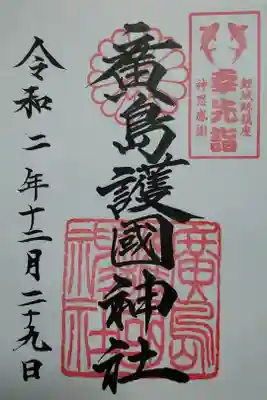 鯉城跡鎮座
幸先詣
神恩感謝
廣島護國神社
廣島護國神社
令和二年十二月二十九日